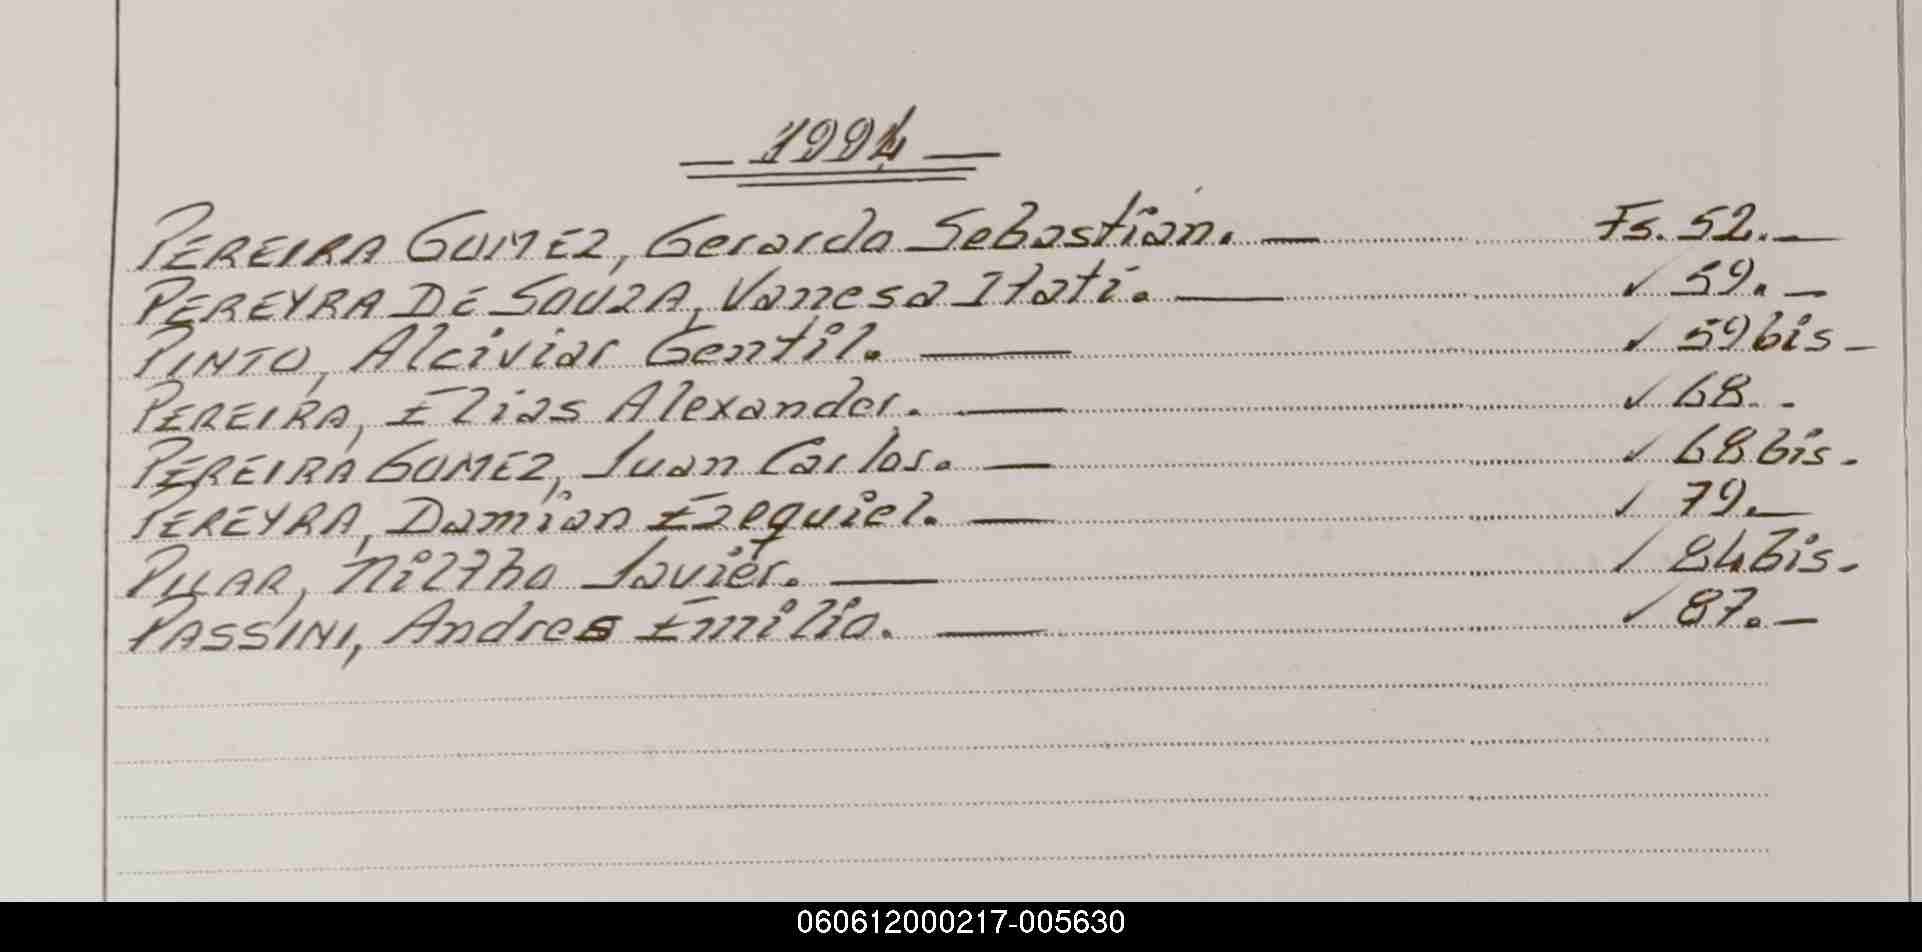 1994
PEREIRA GOMEZ, Gerardo Sebastian. — Fs. 52. —
PEREYRA DE SOUZA, Vanesa Itatí. — ✓ 59. —
PINTO, Alciviar Gentil. — ✓ 59 bis —
PEREIRA, Elias Alexander. — ✓ 68. -
PEREIRA GOMEZ, Juan Carlos. — ✓ 68 bis.
PEREYRA, Damián Ezequiel. — ✓ 79. —
PILAR, Miltho Javier. — ✓ 84 bis.
PASSINI, Andres Emilio. — ✓ 87. —
060612000217-005630